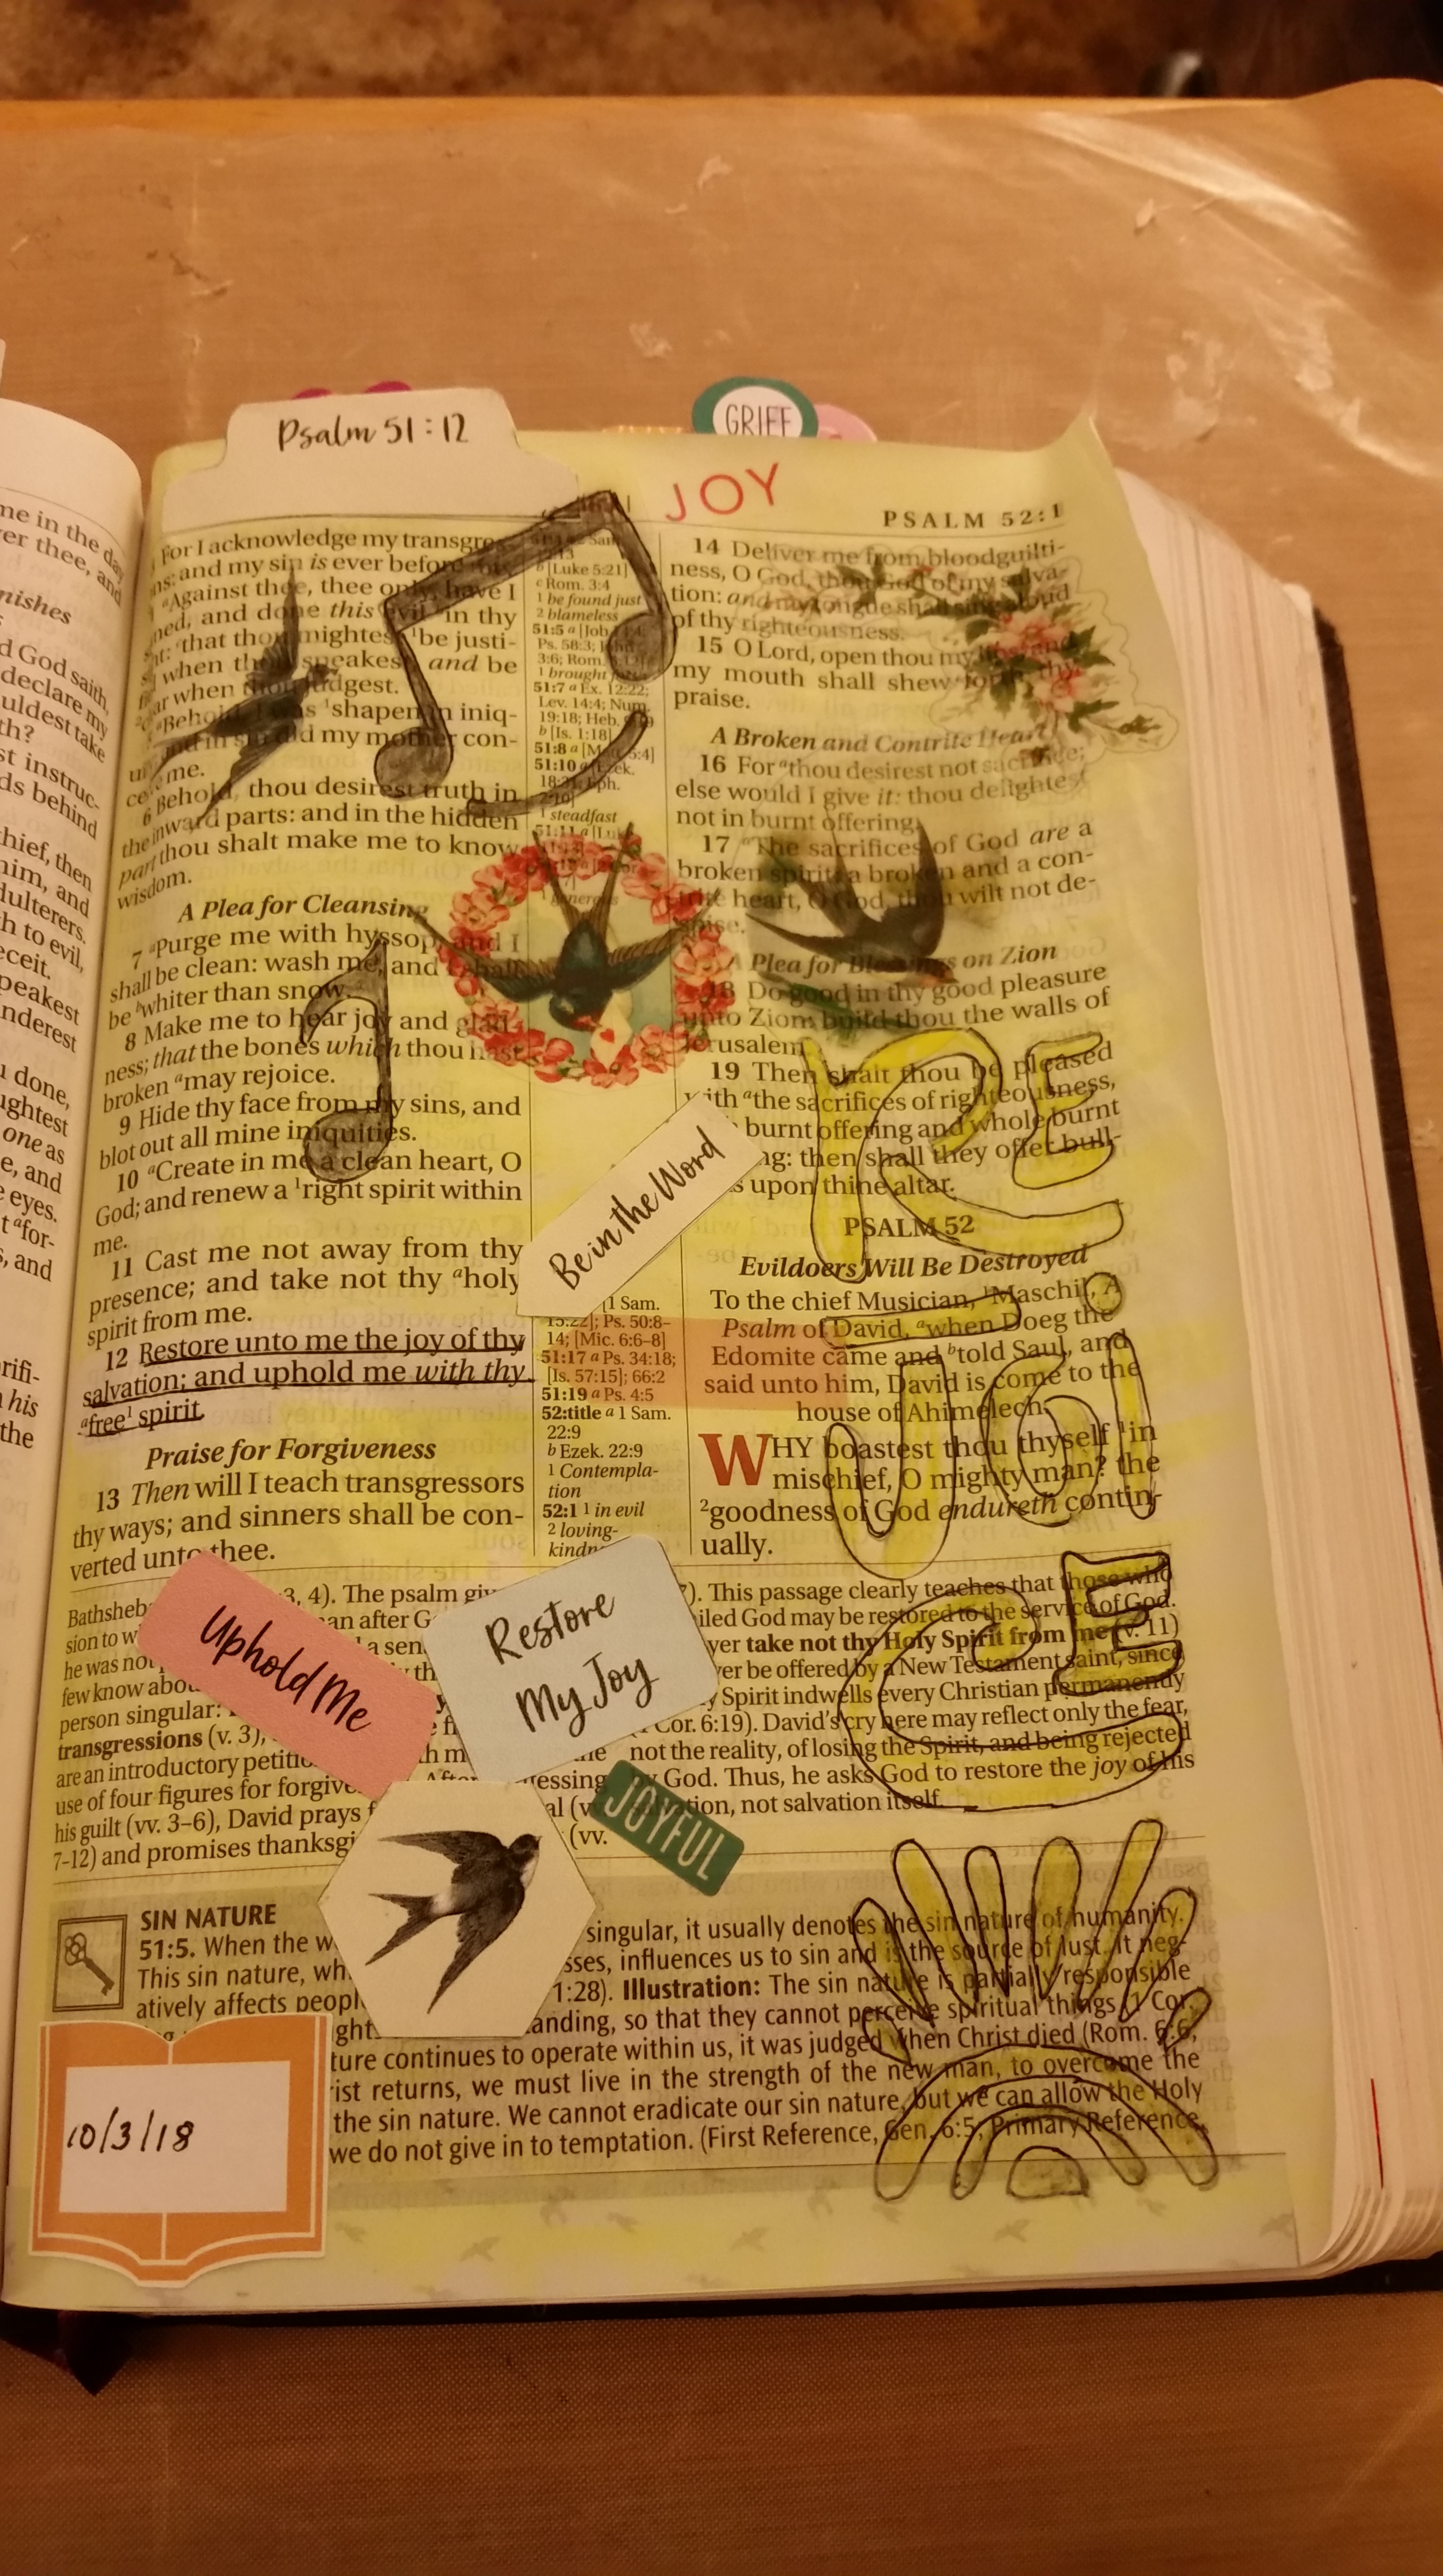 Psalm 51:12
GRIEF
JOY
PSALM 52:1
me in the day
ver thee, and
nishes
d God saith,
declare my
uldest take
th?
st instruc-
ds behind
hief, then
him, and
dulterers.
th to evil,
eceit.
peakest
nderest
u done,
ughtest
one as
e, and
e eyes.
t afor-
s, and
rifi-
his
the
For I acknowledge my transgres-
ns: and my sin is ever before
aAgainst thee, thee only, have I
ned, and done this evil in thy
that thou mightest 1be justi-
when thou speakest, and be
ar when thou judgest.
aBehold, I was 1shapen in iniq-
and in sin did my mother con-
me.
6 Behold, thou desirest truth in
the inward parts: and in the hidden
part thou shalt make me to know
wisdom.
A Plea for Cleansing
7 aPurge me with hyssop, and I
shall be clean: wash me, and I shall
be bwhiter than snow.
8 Make me to hear joy and glad-
ness; that the bones which thou hast
broken amay rejoice.
9 Hide thy face from my sins, and
blot out all mine iniquities.
10 aCreate in me a clean heart, O
God; and renew a 1right spirit within
me.
11 Cast me not away from thy
presence; and take not thy aholy
spirit from me.
12 Restore unto me the joy of thy
salvation; and uphold me with thy
afree1 spirit.
Praise for Forgiveness
13 Then will I teach transgressors
thy ways; and sinners shall be con-
verted unto thee.
b [Luke 5:21]
c Rom. 3:4
1 be found just
2 blameless
51:5 a [Job
Ps. 58:3;
3:6; Rom.
1 brought
51:7 a Ex. 12:22;
Lev. 14:4; Num.
19:18; Heb.
b [Is. 1:18]
51:8 a [Matt. 5:4]
51:10 a Ezek.
18:31; Eph.
1 steadfast
51:11 a [Luke
generous
Be in the Word
[1 Sam.
15:22]; Ps. 50:8–
14; [Mic. 6:6–8]
51:17 a Ps. 34:18;
[Is. 57:15]; 66:2
51:19 a Ps. 4:5
52:title a 1 Sam.
22:9
b Ezek. 22:9
1 Contempla-
tion
52:1 1 in evil
2 loving-
14 Deliver me from bloodguilti-
ness, O God, thou God of my salva-
tion: and my tongue shall sing aloud
of thy righteousness.
15 O Lord, open thou my lips; and
my mouth shall shew forth thy
praise.
A Broken and Contrite Heart
16 For athou desirest not sacrifice;
else would I give it: thou delightest
not in burnt offering.
17 aThe sacrifices of God are a
broken spirit: a broken and a con-
trite heart, O God, thou wilt not de-
spise.
A Plea for Blessings on Zion
18 Do good in thy good pleasure
unto Zion: build thou the walls of
Jerusalem.
19 Then shalt thou be pleased
with athe sacrifices of righteousness,
burnt offering and whole burnt
ng: then shall they offer bull-
s upon thine altar.
PSALM 52
Evildoers Will Be Destroyed
To the chief Musician, 1Maschil, A
Psalm of David, awhen Doeg the
Edomite came and btold Saul, and
said unto him, David is come to the
house of Ahimelech.
WHY boastest thou thyself 1in
mischief, O mighty man? the
2goodness of God endureth contin-
ually.
REJOICE
Uphold Me
Restore
My Joy
JOYFUL
Bathsheb 3, 4). The psalm giv
sion to w an after G
he was not a sen
few know abou
person singular:
transgressions (v. 3),
are an introductory petitio
use of four figures for forgive After
his guilt (vv. 3–6), David prays f
7–12) and promises thanksgi (vv.
). This passage clearly teaches that those who
iled God may be restored to the service of God.
yer take not thy Holy Spirit from me (v. 11)
ver be offered by a New Testament saint, since
y Spirit indwells every Christian permanently
Cor. 6:19). David's cry here may reflect only the fear,
not the reality, of losing the Spirit, and being rejected
God. Thus, he asks God to restore the joy of his
tion, not salvation itself.
SIN NATURE
51:5. When the w singular, it usually denotes the sin nature of humanity.
This sin nature, wh sses, influences us to sin and is the source of lust. It neg-
atively affects peopl 1:28). Illustration: The sin nature is partially responsible
anding, so that they cannot perceive spiritual things (1 Cor.
ture continues to operate within us, it was judged when Christ died (Rom. 6:6,
rist returns, we must live in the strength of the new man, to overcome the
the sin nature. We cannot eradicate our sin nature, but we can allow the Holy
we do not give in to temptation. (First Reference, Gen. 6:5; Primary Reference,
10/3/18